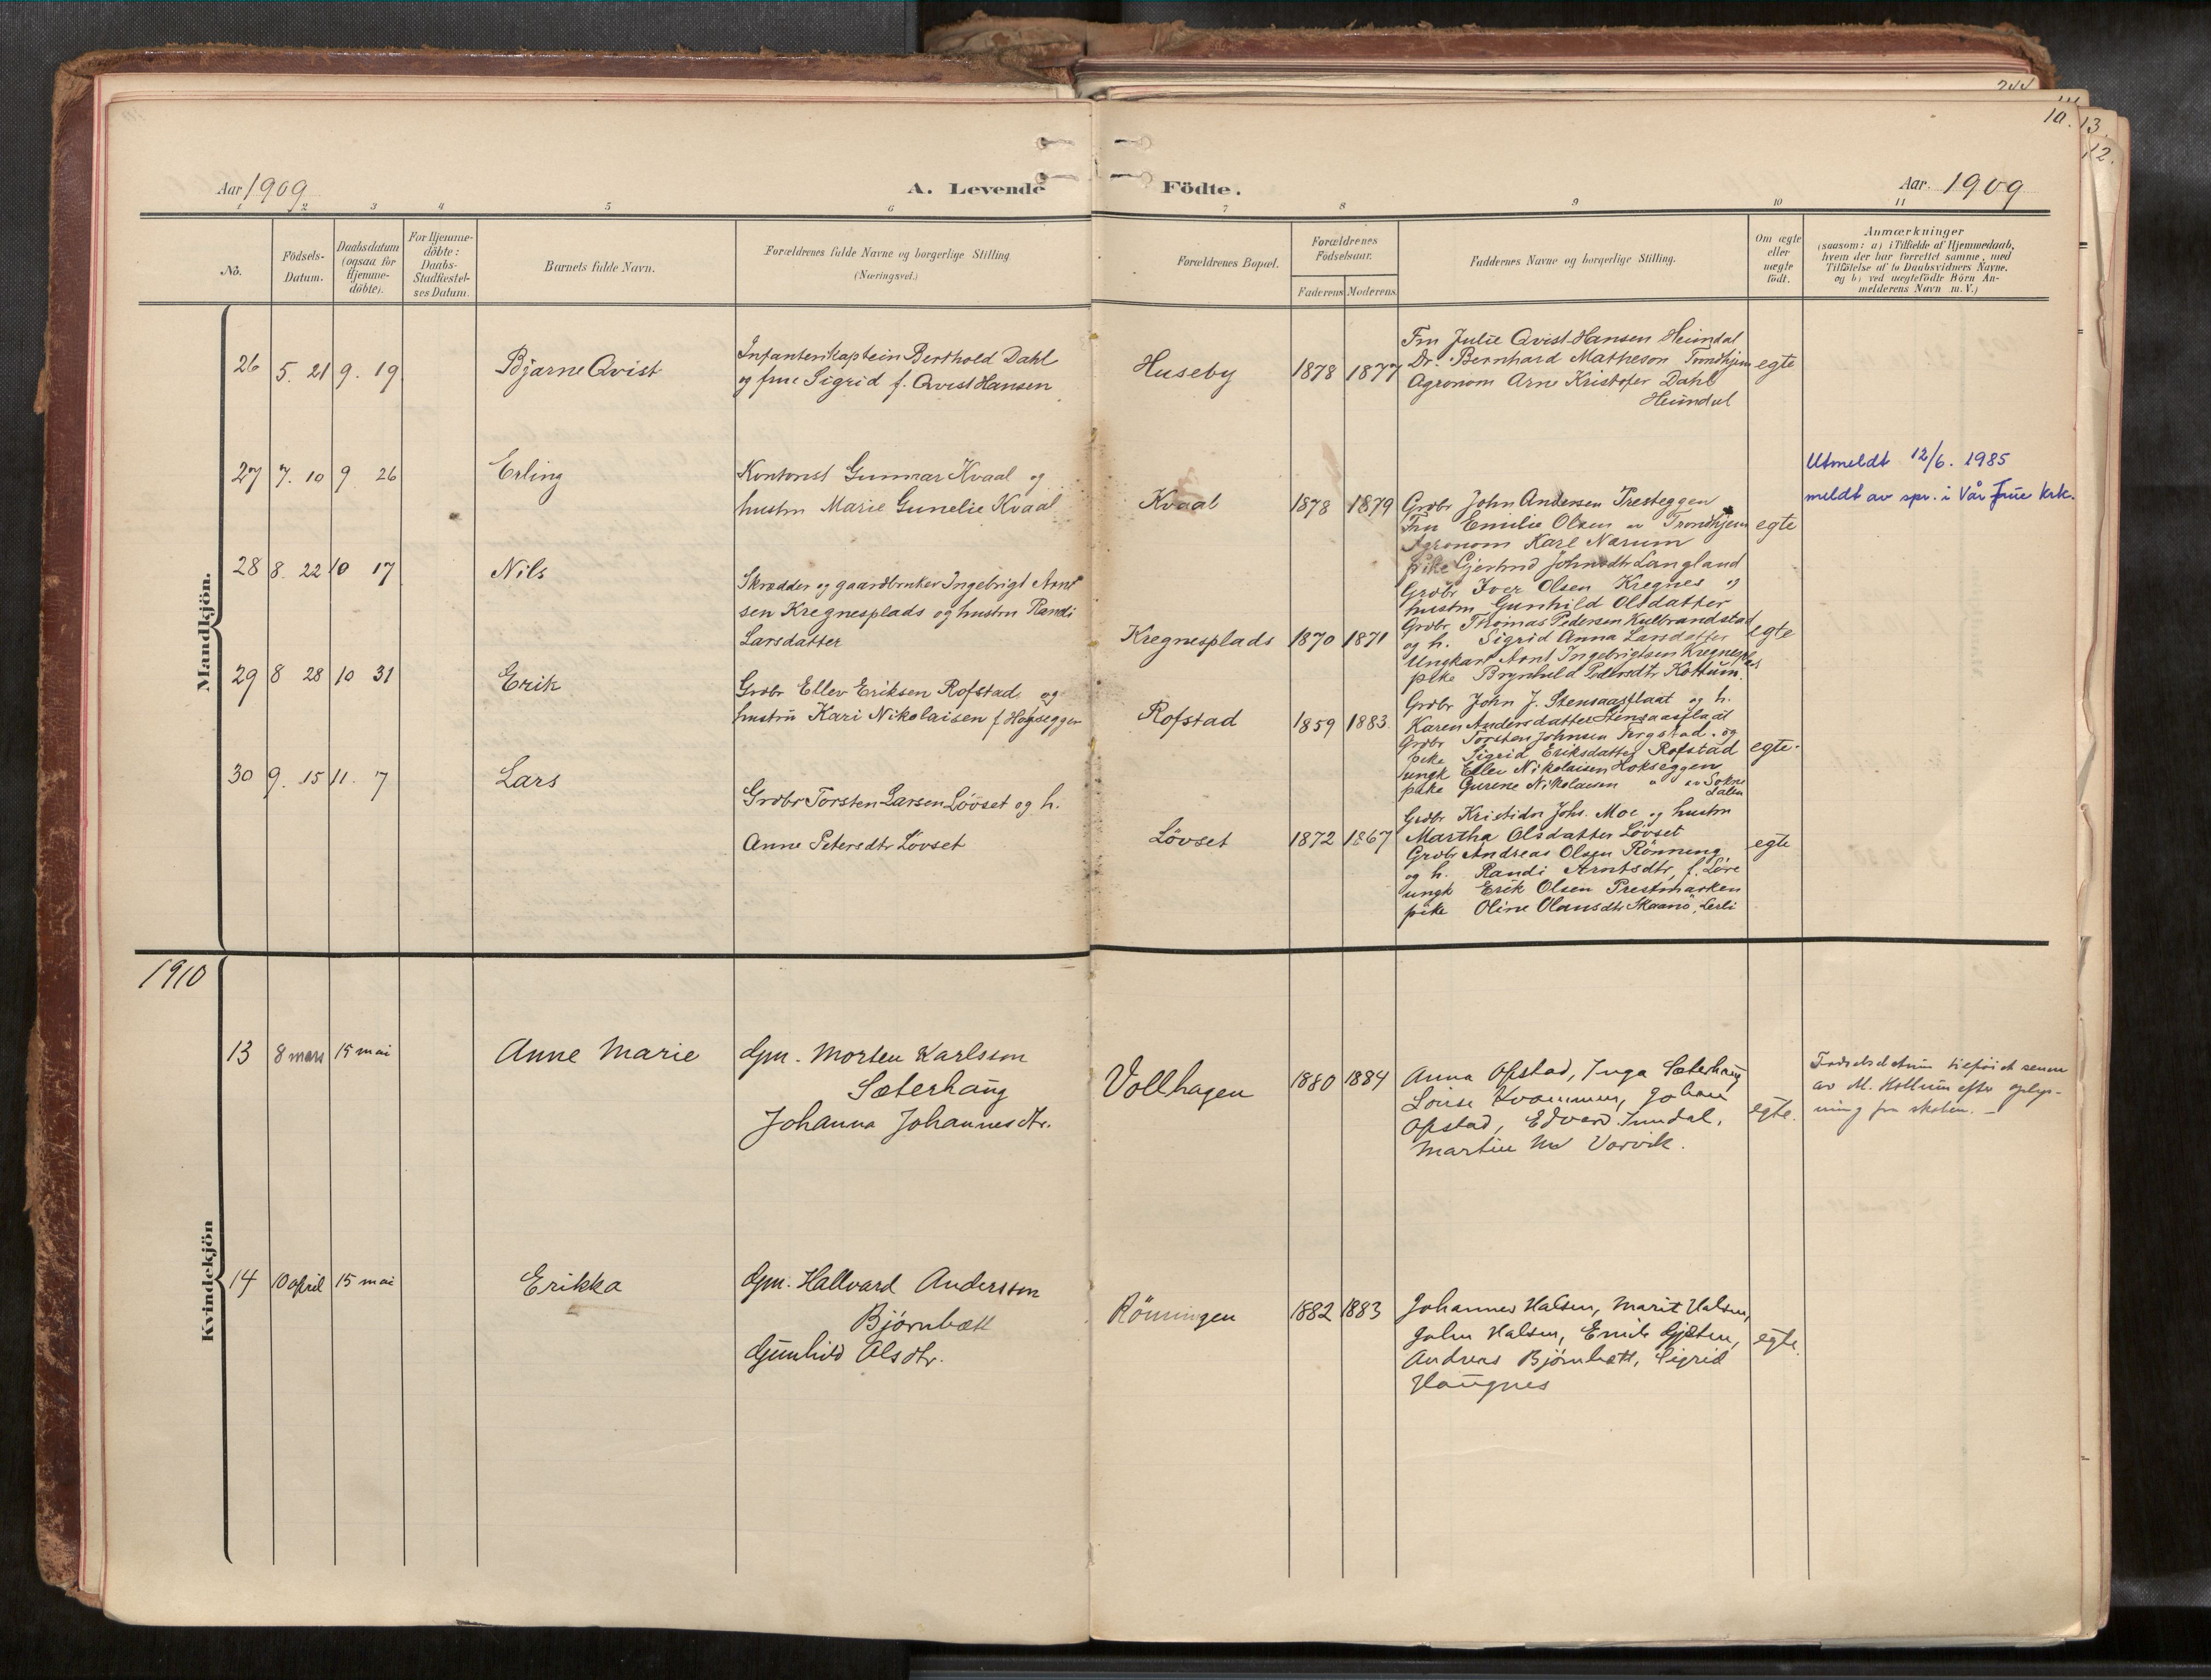 244
10.
13.
12.
Aar 1909
A. Levende
Födte.
Aar. 1909
1 2 3 4 5 6 7 8 9 10 11
No.
Födsels-
Datum.
Daabsdatum
(ogsaa for
Hjemme-
döbte).
For Hjemme-
döbte:
Daabs-
Stadfæstel-
ses Datum.
Barnets fulde Navn.
Forældrenes fulde Navne og borgerlige Stilling
(Næringsvei.)
Forældrenes Bopæl.
Forældrenes
Födselsaar.
Faderens Moderens
Faddernes Navne og borgerlige Stilling.
Om ægte
eller
uægte
födt.
Anmærkninger
(saasom: a) i Tilfælde af Hjemmedaab,
hvem der har forrettet samme, med
Tilföielse af to Daabsvidners Navne.
og b) ved uægtefödte Börn An-
melderens Navn m. V.)
Mandkjön.
26 5. 21 9. 19
Bjarne Qvist
Infanterikaptein Berthold Dahl
og frue Sigrid f. Qvist Hansen
Huseby
1878 1877
Fru Julie Qvist-Hansen Heimdal
Dr. Bernhard Matheson Trondhjem
Agronom Arne Kristofer Dahl
Heimdal
egte
27 7. 10 9 26
Erling
Kontorist Gunnar Kvaal og
hustru Marie Gunelie Kvaal
Kvaal
1878 1879
Grdbr John Andersen Presteggen
Fru Emilie Olsen av Trondhjem
Agronom Karl Narum
pike Gjertrud Johnsdtr Langland
egte
Utmeldt 12/6. 1985
meldt av spr. i Vår Frue krk.
28 8. 22 10 17
Nils
Skrædder og gaardbruker Ingebrigt Arnt
sen Kregnesplads og hustru Randi
Larsdatter
Kregnesplads
1870 1871
Grdbr Iver Olsen Kregnes og
hustru Gunhild Olsdatter
Grdbr Thomas Pedersen Kulbrandstad
og h. Sigrid Anna Larsdatter
Ungkarl Arnt Ingebrigtsen Kregnespl
pike Brynhild Pedersdtr Kottum.
egte
29 8 28 10 31
Erik
Grdbr Ellev Eriksen Rofstad og
hustru Kari Nikolaisen f. Hogseggen
Rofstad
1859 1883
Grdbr John J. Stensaasflaat og h.
Karen Andersdatter Stensaasflaat
Grdbr Torsten Johnsen Fergstad. og
pike Sigrid Eriksdatter Rofstad
ungk Ellev Nikolaisen Hokseggen
pike Gurene Nikolaisen " av Sokne
dalen
egte.
30 9. 15 11. 7
Lars
Grdbr Torsten Larsen Lövset og h.
Anne Petersdtr Lövset
Lövset
1872 1867
Grdbr Kristian Johs. Moe og hustru
Martha Olsdatter Lövset
Grdbr Andreas Olsen Rönning
og h. Randi Arntsdtr, f. Löre
ungk Erik Olsen Prestmarken
pike Oline Olausdtr Skaanö, Lerli
egte
1910
Kvindekjön
13 8 mars 15 mai
Anne Marie
Gm. Morten Karlsson
Sæterhaug
Johanna Johannesdtr.
Vollhagen
1880 1884
Anna Opstad, Inga Sæterhaug
Louise Kvammen, Johan
Opstad, Edvard Sundal,
Martin Vorvik.
egte.
Fødselsdatum tilføiet senere
av M. Hollum efter oplys-
ning fra skolen. –
14 10 april 15 mai
Erikka
Gm. Hallvard Andersson
Bjørnbætt
Gunhild Olsdtr.
Rönningen
1882 1883
Johannes Halsen, Marit Halsen,
John Halsen, Emil Gjsten,
Andreas Bjørnbætt, Sigrid
Haugnes
egte.